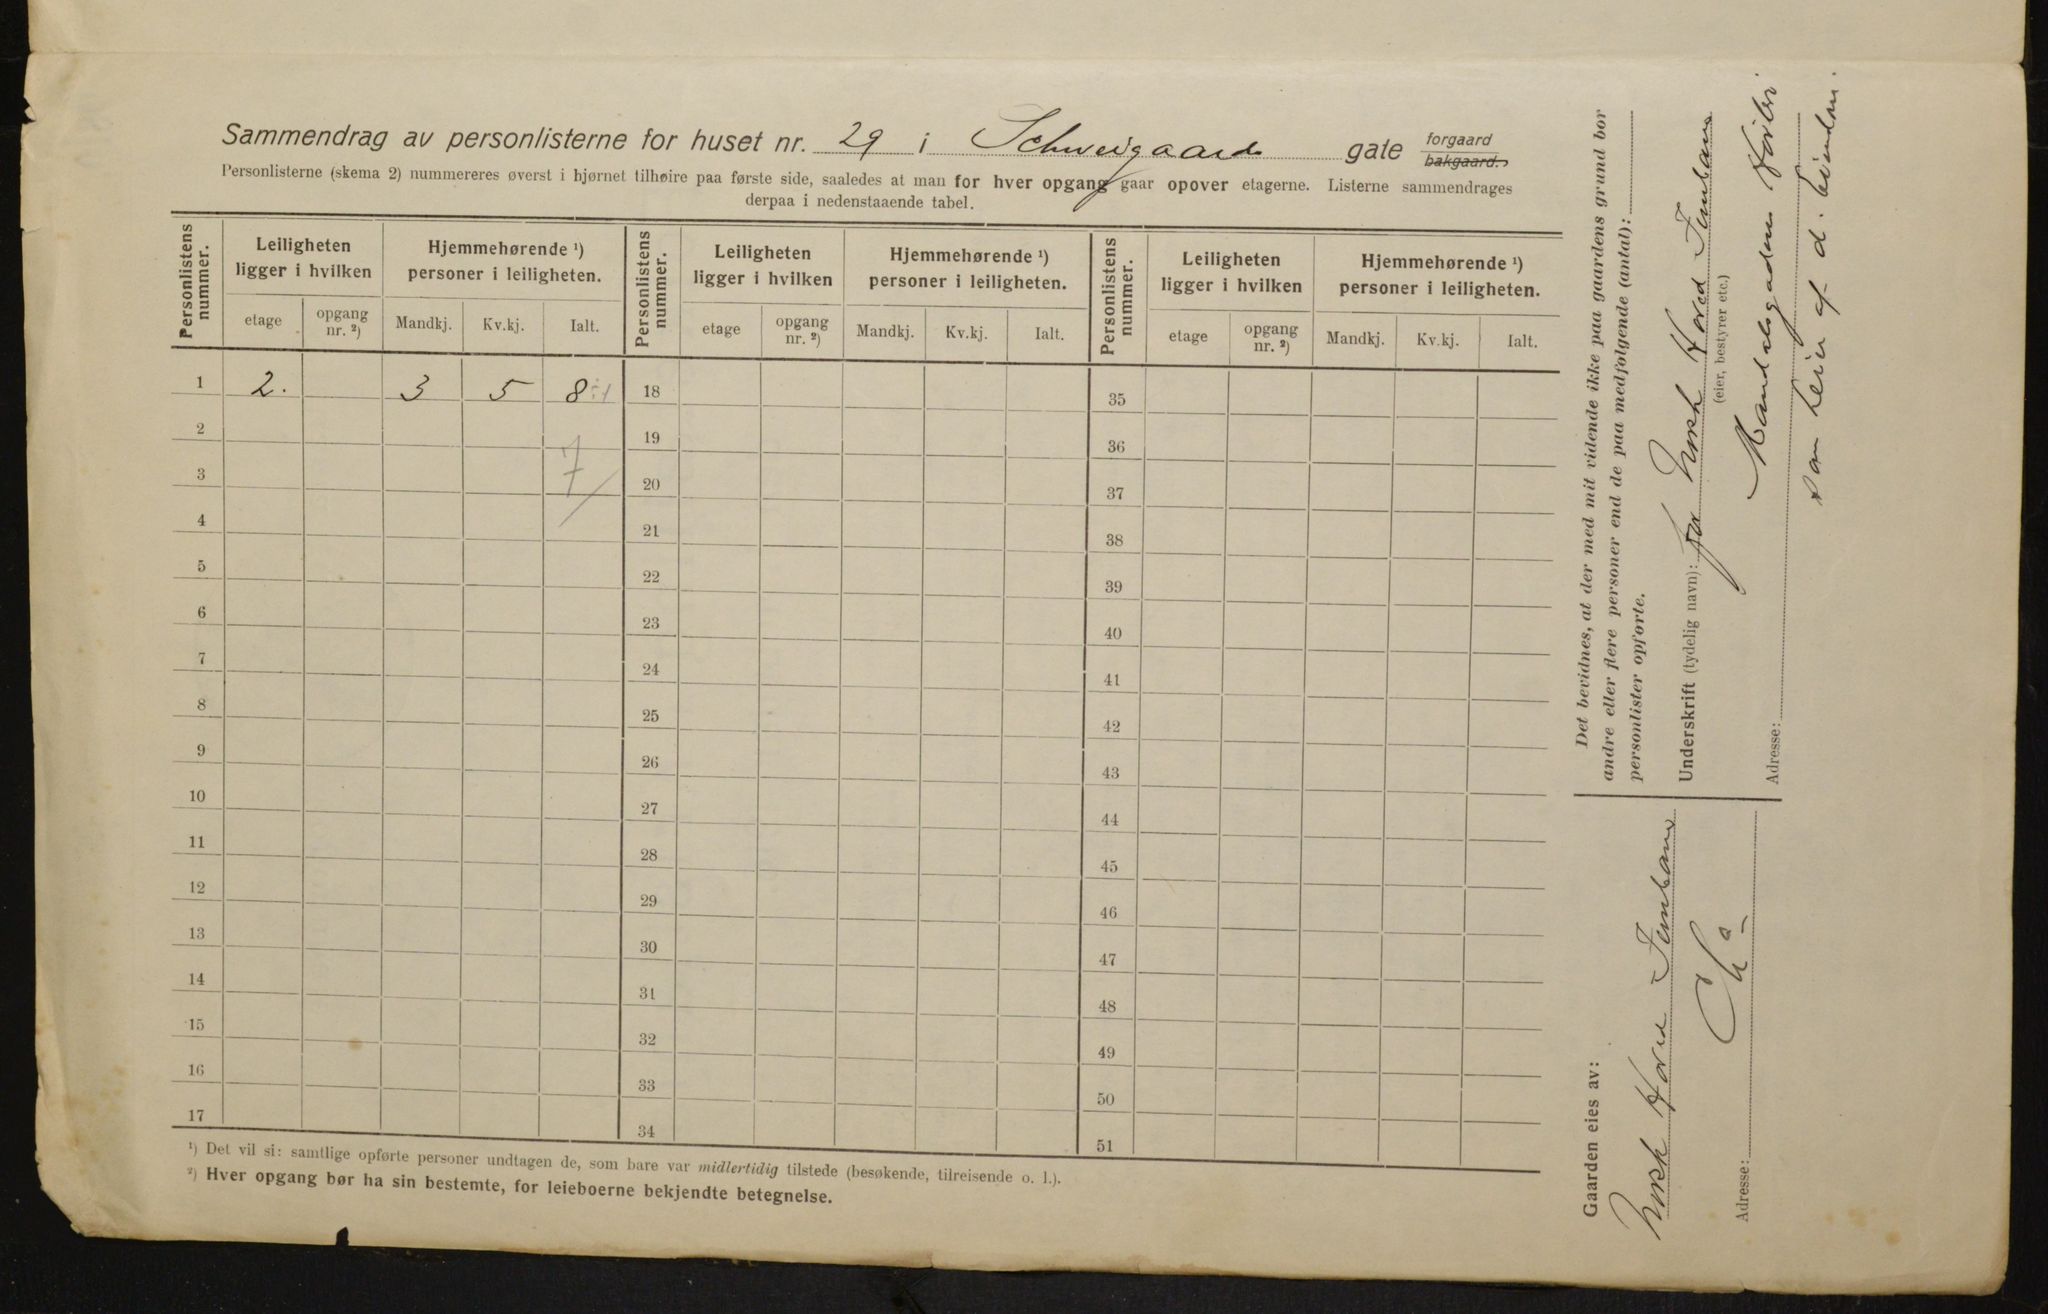 Sammendrag av personlisterne for huset nr. 29 i Schweigaards gate forgaard bakgaard.
Personlisterne (skema 2) nummereres øverst i hjørnet tilhøire paa første side, saaledes at man for hver opgang gaar opover etagerne. Listerne sammendrages
derpaa i nedenstaaende tabel.
Personlistens nummer. Leiligheten ligger i hvilken Hjemmehørende ¹) personer i leiligheten. Personlistens nummer. Leiligheten ligger i hvilken Hjemmehørende ¹) personer i leiligheten. Personlistens nummer. Leiligheten ligger i hvilken Hjemmehørende ¹) personer i leiligheten.
etage opgang nr. ²) Mandkj. Kv.kj. Ialt. etage opgang nr. ²) Mandkj. Kv.kj. Ialt. etage opgang nr. ²) Mandkj. Kv.kj. Ialt.
1 2. 3 5 8 ÷1 18 35
2 19 36
3 7 20 37
4 21 38
5 22 39
6 23 40
7 24 41
8 25 42
9 26 43
10 27 44
11 28 45
12 29 46
13 30 47
14 31 48
15 32 49
16 33 50
17 34 51
¹) Det vil si: samtlige opførte personer undtagen de, som bare var midlertidig tilstede (besøkende, tilreisende o. l.).
²) Hver opgang bør ha sin bestemte, for leieboerne bekjendte betegnelse.
Det bevidnes, at der med mit vidende ikke paa gaardens grund bor
andre eller flere personer end de paa medfølgende (antal):
personlister opførte.
Underskrift (tydelig navn): for Norsk Hoved Jernbane
(eier, bestyrer etc.)
Adresse:
som leier af d. eiendom.
Gaarden eies av:
Norsk Hoved Jernbane
Adresse: Chra